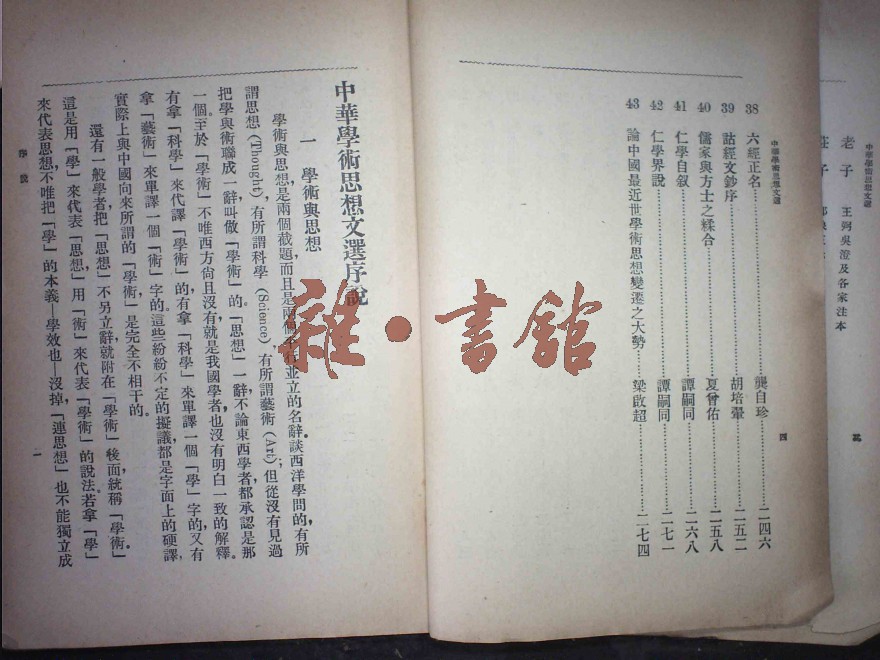 中華學術思想文選
老子 王弼吳澄及各家注本
莊子
三
中華學術思想文選
38 六經正名……龔自珍……二四六
39 詁經文鈔序……胡培翬……二五二
40 儒家與方士之糅合……夏曾佑……二五八
41 仁學自叙……譚嗣同……二六八
42 仁學界說……譚嗣同……二七一
43 論中國最近世學術思想變遷之大勢……梁啟超……二七四
四
中華學術思想文選序說
一 學術與思想
學術與思想,是兩個截題,而且是兩個行並立的名辭。談西洋學問的,有所
謂思想(Thought),有所謂科學(Science),有所謂藝術(Art);但從沒有見過
把學與術聯成一辭,叫做「學術」的。「思想」一辭,不論東西學者,都承認是那
一個;至於「學術」,不唯西方尙且沒有,就是我國學者,也沒有明白一致的解釋。
有拿「科學」來代譯「學術」的,有拿「科學」來單譯一個「學」字的,又有
拿「藝術」來單譯一個「術」字的。這些紛紛不定的擬議,都是字面上的硬譯,
實際上與中國向來所謂的「學術」,是完全不相干的。
還有一般學者,把「思想」不另立辭,就附在「學術」後面,統稱「學術」。
這是用「學」來代表「思想」,用「術」來代表「學術」的說法。若拿「學」
來代表思想,不唯把「學」的本義—學效也—沒掉,「連思想」也不能獨立成
序說
一
雜·書館